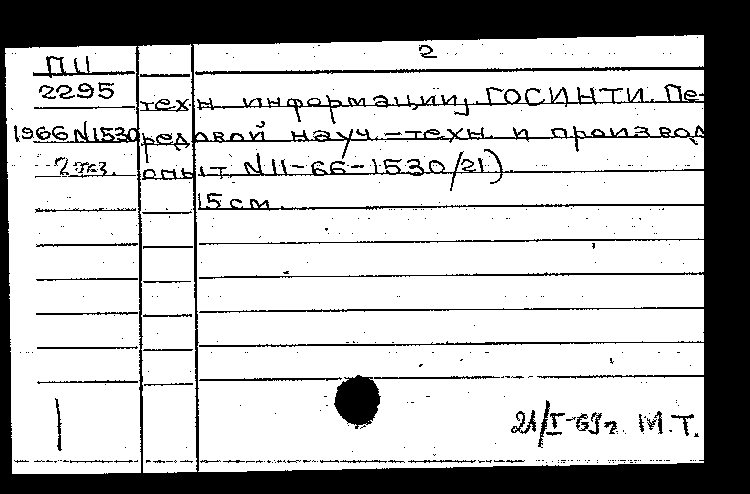 2
П II
2295
техн. информации, ГОСИНТИ. Пе-
1966 N1530
редовой науч.-техн. и производ
2 экз.
опыт. N 11-66-1530/21)
15 см.
21/I-69г. М.Т.